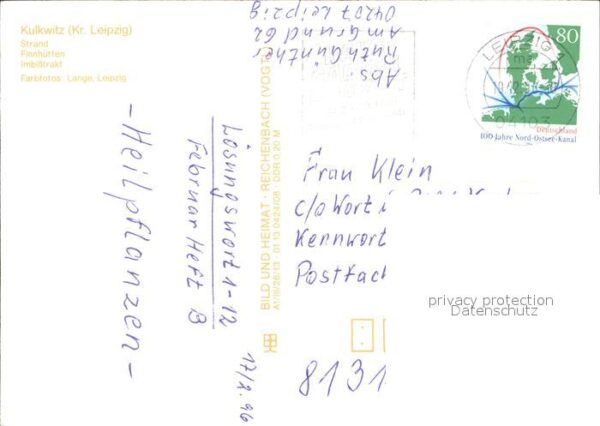 Kulkwitz (Kr. Leipzig)
Strand
Finnhütten
Imbißtrakt
Farbfotos: Lange, Leipzig
Abs:
Ruth Günther
Am Grund 62
04207 Leipzig
80
LEIPZIG
04103
Deutschland
100 Jahre Nord-Ostsee-Kanal
- Heilpflanzen -
Lösungswort 1-12
Februar Heft B
17/2.96
BILD UND HEIMAT · REICHENBACH (VOGTL
A1/III/26/13 · 01 13 0424/08 · DDR 0,20 M
Frau Klein
c/o Wort i
Kennwort
Postfach
8131
privacy protection
Datenschutz